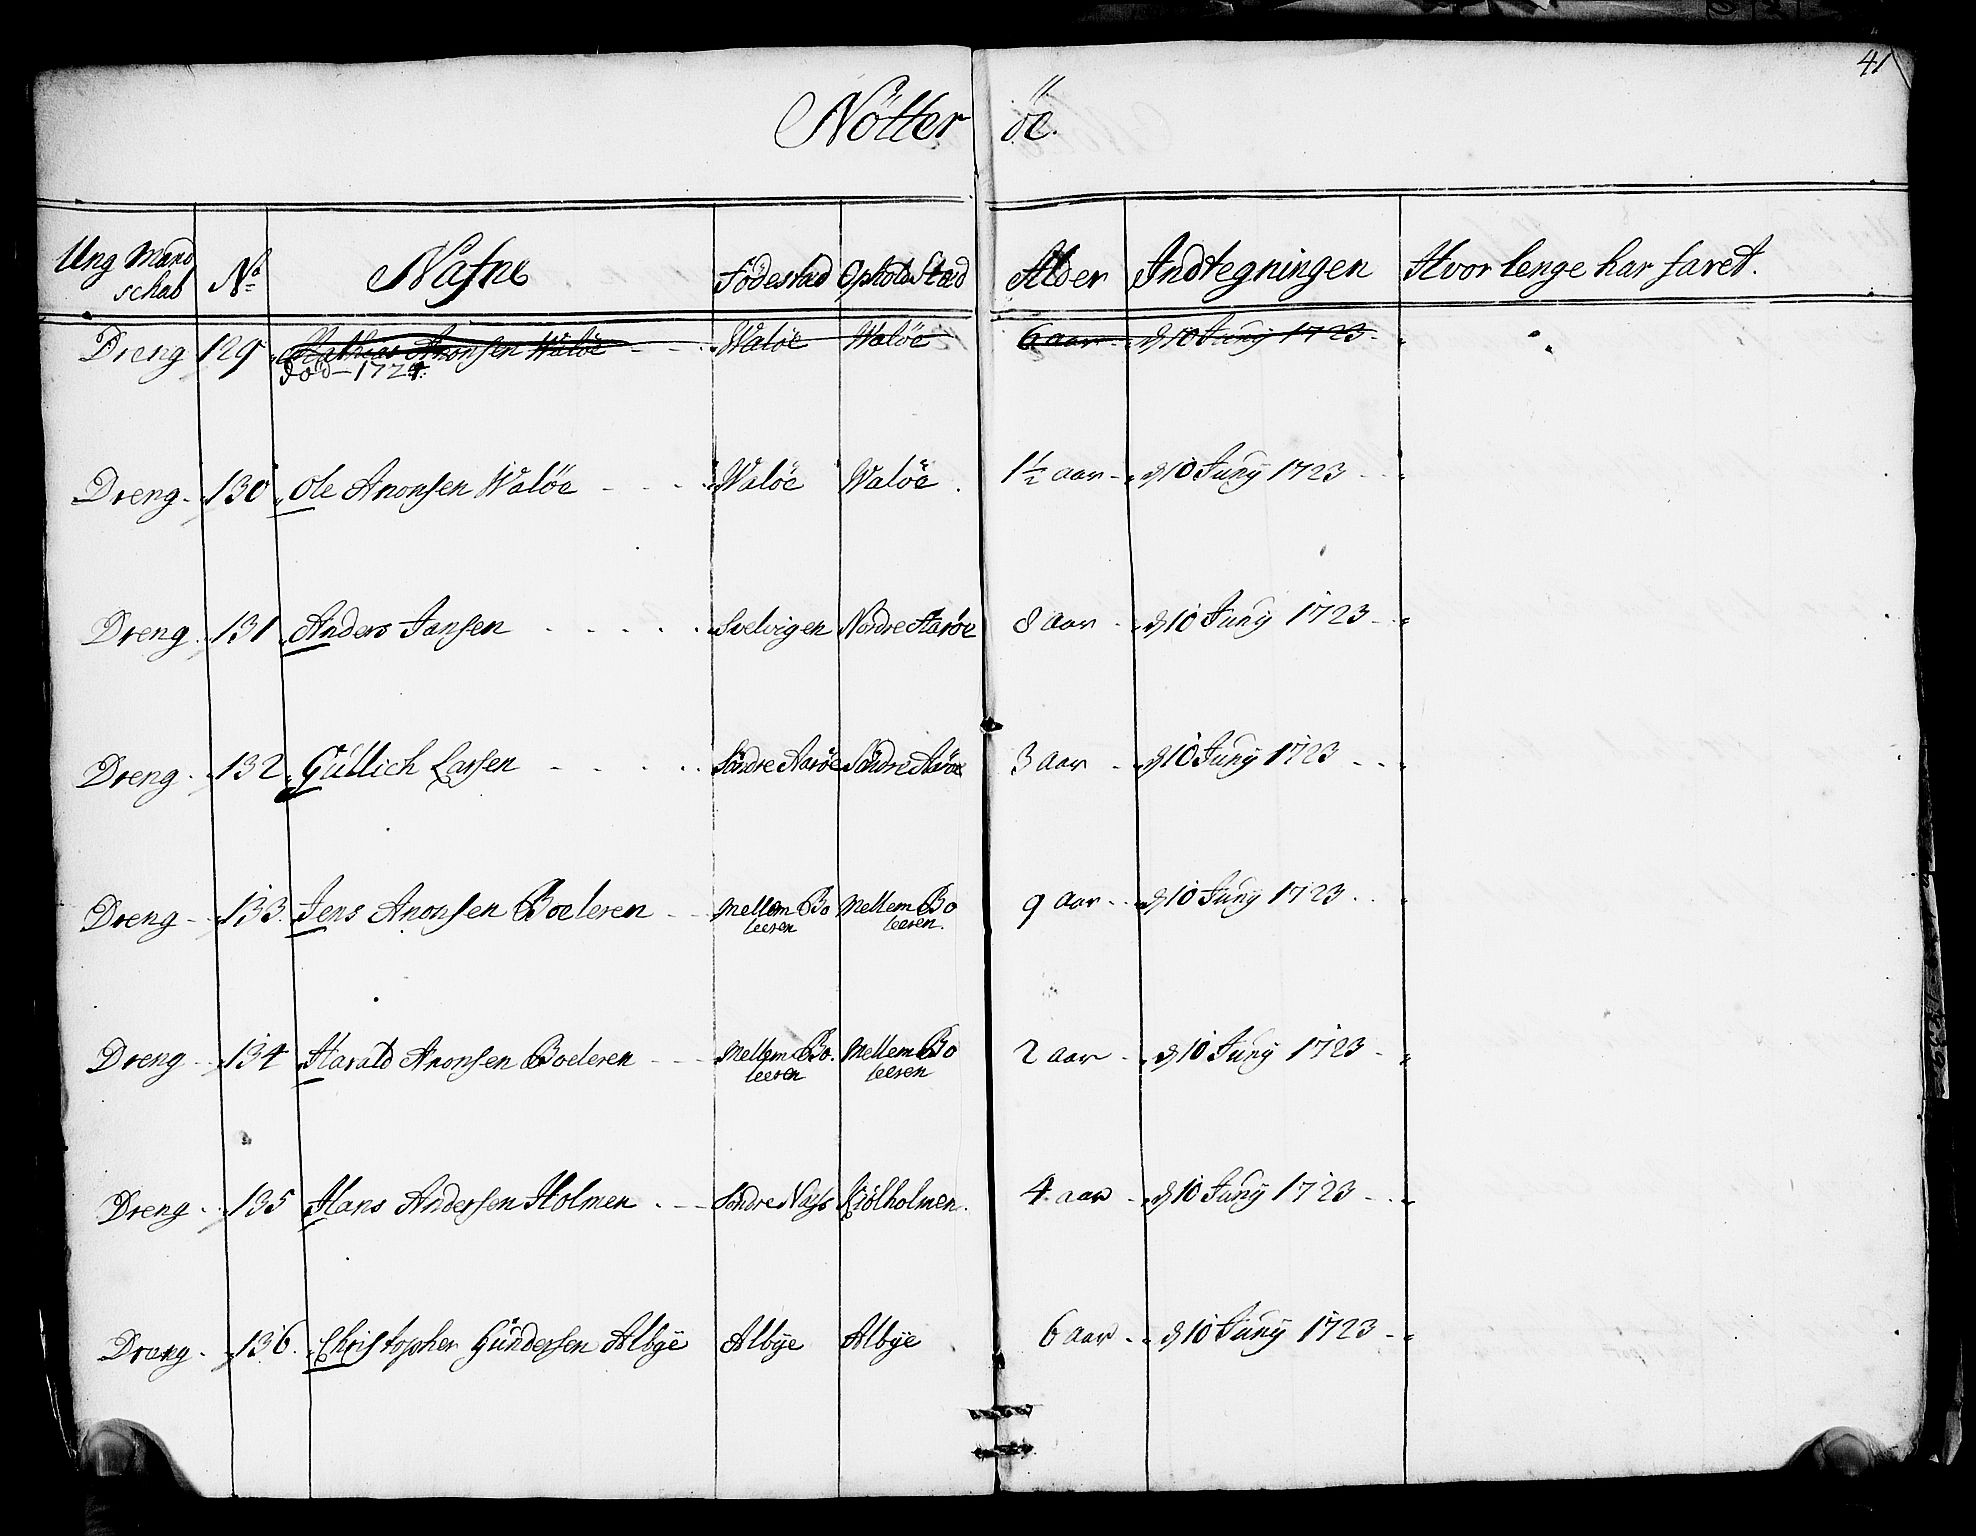 41
Nötter öe.
Ung Mand schab No Nafne Födestad Opholds Stæd Alder Indtegningen Hvor lenge har faret.
Dreng 129 Mathias Anonsen Waløe Waløe Waløe 6 aar d 10 Juny 1723
död 1724
Dreng 130 Ole Anonsen Waløe Waløe Waløe 1½ aar d 10 Juny 1723
Dreng 131 Anders Jansen Svelvigen Nordre Aarøe 8 aar d 10 Juny 1723
Dreng 132 Gullich Larsen Söndre Aarøe Söndre Aarøe 3 aar d 10 Juny 1723
Dreng 133 Jens Anonsen Boeleren Mellem Bo leeren Mellem Bo leeren. 9 aar d 10 Juny 1723
Dreng 134 Harald Anonsen Boeleren Mellem Bo. leeren Mellem Bo leeren 2 aar d 10 Juny 1723
Dreng 135 Hans Andersen Holmen Söndre Næss Kiölholmen. 4 aar d 10 Juny 1723
Dreng 136 Christopher Gundersen Albye Albye Albye 6 aar d 10 Juny 1723